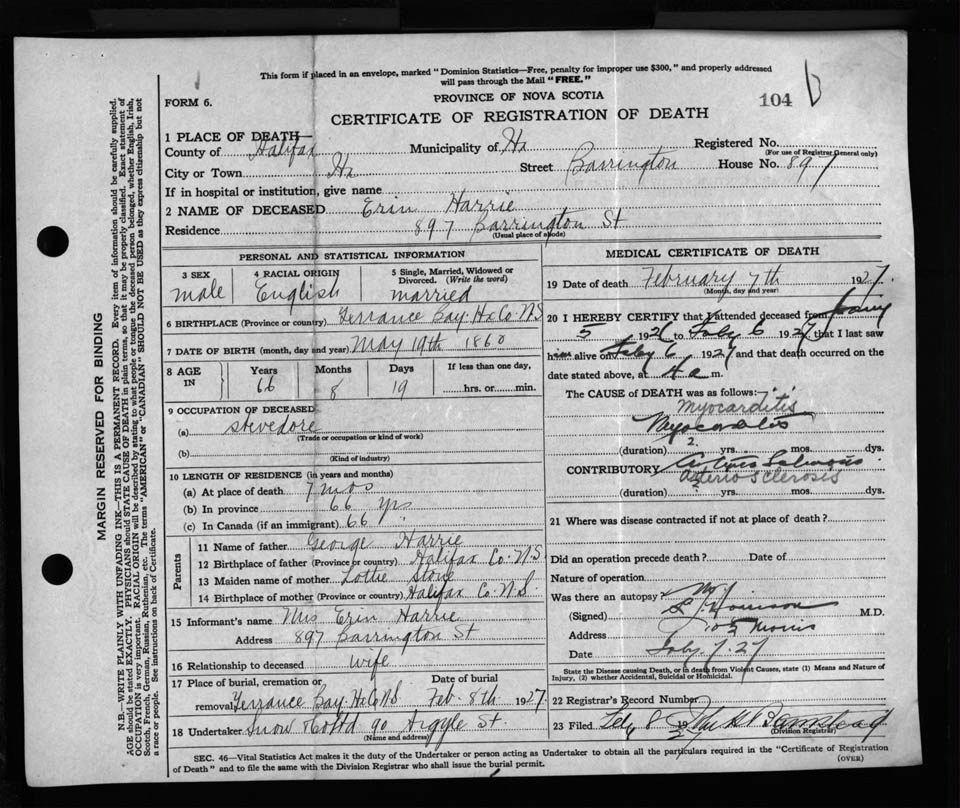 This form if placed in an envelope, marked "Dominion Statistics—Free, penalty for improper use $300," and properly addressed
will pass through the Mail "FREE."
FORM 6.
PROVINCE OF NOVA SCOTIA
104
CERTIFICATE OF REGISTRATION OF DEATH
1 PLACE OF DEATH—
County of Halifax Municipality of Hx Registered No.
(For use of Registrar General only)
City or Town Hx Street Barrington House No. 897
If in hospital or institution, give name
2 NAME OF DECEASED Erin Harrie
Residence 897 Barrington St
(Usual place of abode)
PERSONAL AND STATISTICAL INFORMATION
3 SEX 4 RACIAL ORIGIN 5 Single, Married, Widowed or Divorced. (Write the word)
male English married
6 BIRTHPLACE (Province or country) Terrance Bay Hx Co N.S
7 DATE OF BIRTH (month, day and year) May 19th 1860
8 AGE IN Years Months Days If less than one day,
66 8 19 hrs. or min.
9 OCCUPATION OF DECEASED
(a) Stevedore
(Trade or occupation or kind of work)
(b)
(Kind of industry)
10 LENGTH OF RESIDENCE (in years and months)
(a) At place of death 7 mos
(b) In province 66 yrs
(c) In Canada (if an immigrant) 66 yrs
Parents
11 Name of father George Harrie
12 Birthplace of father (Province or country) Halifax Co. N.S.
13 Maiden name of mother Lottie
14 Birthplace of mother (Province or country) Halifax Co. N.S.
15 Informant's name Mrs Erin Harrie
Address 897 Barrington St
16 Relationship to deceased wife
17 Place of burial, cremation or removal Date of burial
Terrance Bay Hx Co N.S. Feb. 8th 1927
18 Undertaker Snow & Co Ltd 90 Argyle St.
(Name and address)
MEDICAL CERTIFICATE OF DEATH
19 Date of death February 7th 1927
(Month, day and year)
20 I HEREBY CERTIFY that I attended deceased from
5 192 to Feby 6 1927 that I last saw
him alive on Feby 6 1927 and that death occurred on the
date stated above, at m.
The CAUSE OF DEATH was as follows:
Myocarditis
Myocarditis
(duration) 2 yrs. mos. dys.
CONTRIBUTORY Arterio Sclerosis
Arterio Sclerosis
(duration) yrs. mos. dys.
21 Where was disease contracted if not at place of death?
Did an operation precede death? Date of
Nature of operation
Was there an autopsy? No
(Signed) M.D.
Address Morris
Date Feby. 7. 27
State the Disease causing Death, or in death from Violent Causes, state (1) Means and Nature of Injury, (2) whether Accidental, Suicidal or Homicidal.
22 Registrar's Record Number
23 Filed Feby 8 192
(Division Registrar)
SEC. 46—Vital Statistics Act makes it the duty of the Undertaker or person acting as Undertaker to obtain all the particulars required in the "Certificate of Registration
of Death" and to file the same with the Division Registrar who shall issue the burial permit.
(OVER)
MARGIN RESERVED FOR BINDING
N.B.—WRITE PLAINLY WITH UNFADING INK—THIS IS A PERMANENT RECORD. Every item of information should be carefully supplied.
AGE should be stated EXACTLY. PHYSICIANS should STATE CAUSE OF DEATH in plain terms, so that it may be properly classified. Exact statement of
OCCUPATION is very important. RACIAL ORIGIN will be described by stating to what people or tongue the deceased person belonged, whether English, Irish,
Scotch, French, German, Russian, Ruthenian, etc. The terms "AMERICAN" or "CANADIAN" SHOULD NOT BE USED as they express citizenship but not
a race or people. See instructions on back of Certificate.